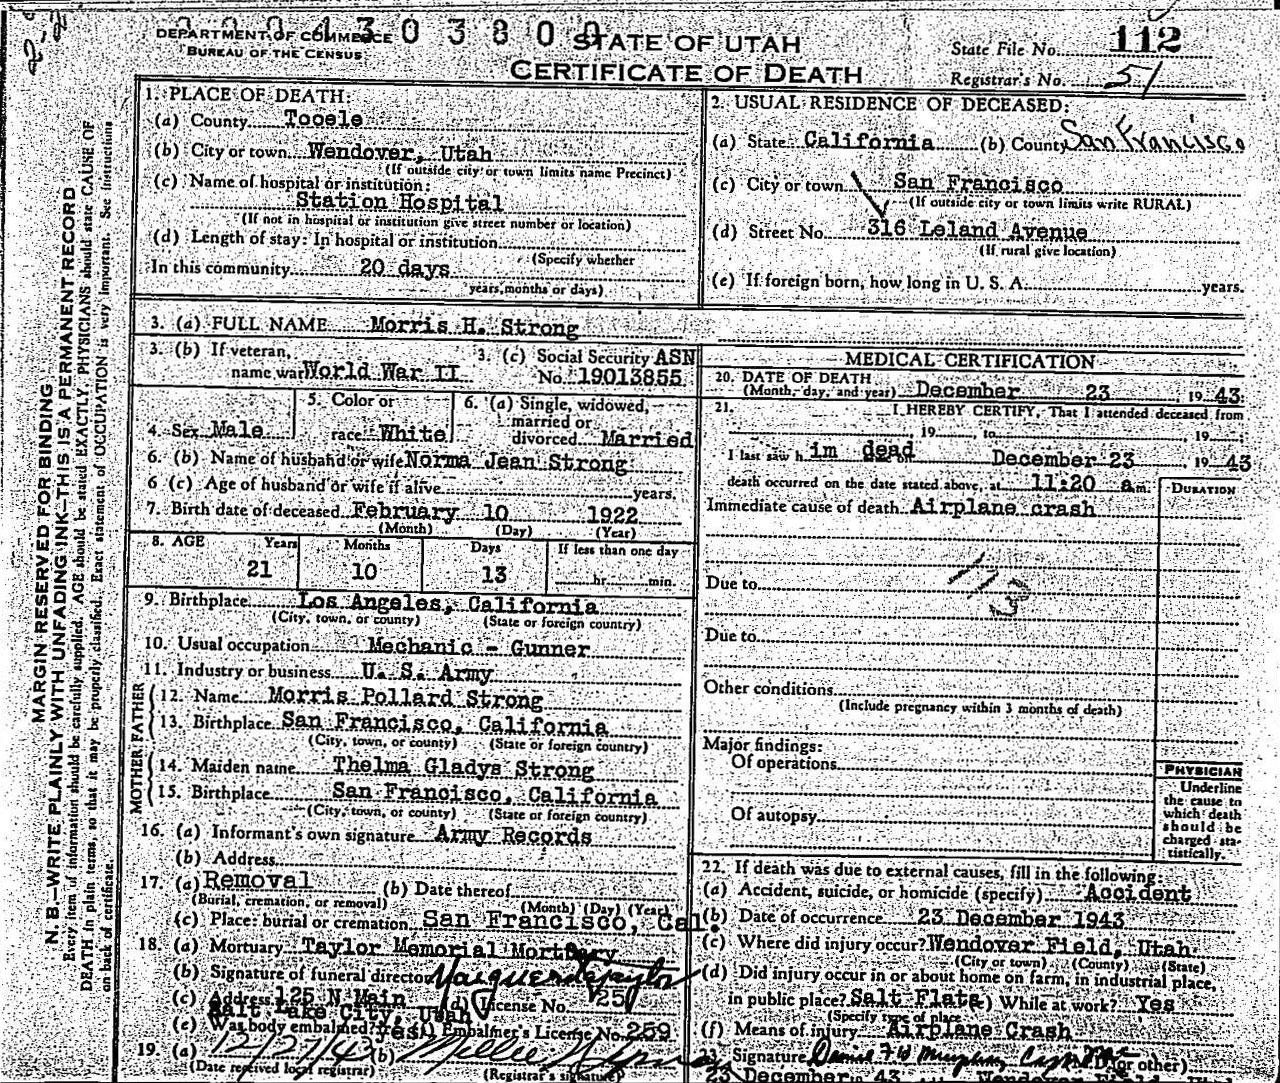 DEPARTMENT OF COMMERCE
BUREAU OF THE CENSUS
STATE OF UTAH
CERTIFICATE OF DEATH
State File No. 112
Registrar's No. 51
MARGIN RESERVED FOR BINDING
N. B.—WRITE PLAINLY WITH UNFADING INK—THIS IS A PERMANENT RECORD
Every item of information should be carefully supplied. AGE should be stated EXACTLY. PHYSICIANS should state CAUSE OF
DEATH in plain terms, so that it may be properly classified. Exact statement of OCCUPATION is very important. See instructions
on back of certificate.
1. PLACE OF DEATH:
(a) County Tooele
(b) City or town Wendover, Utah
(If outside city or town limits name Precinct)
(c) Name of hospital or institution:
Station Hospital
(If not in hospital or institution give street number or location)
(d) Length of stay: In hospital or institution
(Specify whether
In this community 20 days
years, months or days)
2. USUAL RESIDENCE OF DECEASED:
(a) State California (b) County San Francisco
(c) City or town San Francisco
(If outside city or town limits write RURAL)
(d) Street No. 316 Leland Avenue
(If rural give location)
(e) If foreign born, how long in U. S. A. years.
3. (a) FULL NAME Morris H. Strong
3. (b) If veteran, name war World War II
3. (c) Social Security ASN No. 19013855
4. Sex Male
5. Color or race White
6. (a) Single, widowed, married or divorced Married
6. (b) Name of husband or wife Norma Jean Strong
6 (c) Age of husband or wife if alive years.
7. Birth date of deceased February 10 1922
(Month) (Day) (Year)
8. AGE Years Months Days If less than one day
21 10 13 hr. min.
9. Birthplace Los Angeles, California
(City, town, or county) (State or foreign country)
10. Usual occupation Mechanic - Gunner
11. Industry or business U. S. Army
FATHER
12. Name Morris Pollard Strong
13. Birthplace San Francisco, California
(City, town, or county) (State or foreign country)
MOTHER
14. Maiden name Thelma Gladys Strong
15. Birthplace San Francisco, California
(City, town, or county) (State or foreign country)
16. (a) Informant's own signature Army Records
(b) Address
17. (a) Removal (b) Date thereof
(Burial, cremation, or removal) (Month) (Day) (Year)
(c) Place: burial or cremation San Francisco, Cal.
18. (a) Mortuary Taylor Memorial Mortuary
(b) Signature of funeral director
(c) Address 125 N Main (d) License No. 251
Salt Lake City, Utah
(e) Was body embalmed? Yes (f) Embalmer's License No. 259
19. (a) 12/27/43 (b)
(Date received local registrar) (Registrar's signature)
MEDICAL CERTIFICATION
20. DATE OF DEATH
(Month, day, and year) December 23 1943
21. I HEREBY CERTIFY, That I attended deceased from
, 19 , to , 19
I last saw him dead on December 23 1943
death occurred on the date stated above, at 11:20 a m.
DURATION
Immediate cause of death Airplane crash
113
Due to
Due to
Other conditions
(Include pregnancy within 3 months of death)
Major findings:
Of operations
Of autopsy
PHYSICIAN
Underline
the cause to
which death
should be
charged sta-
tistically.
22. If death was due to external causes, fill in the following:
(a) Accident, suicide, or homicide (specify) Accident
(b) Date of occurrence 23 December 1943
(c) Where did injury occur? Wendover Field, Utah
(City or town) (County) (State)
(d) Did injury occur in or about home on farm, in industrial place,
in public place? Salt Flats While at work? Yes
(Specify type of place)
(f) Means of injury Airplane Crash
23. Signature (M.D. or other)
23 December 43